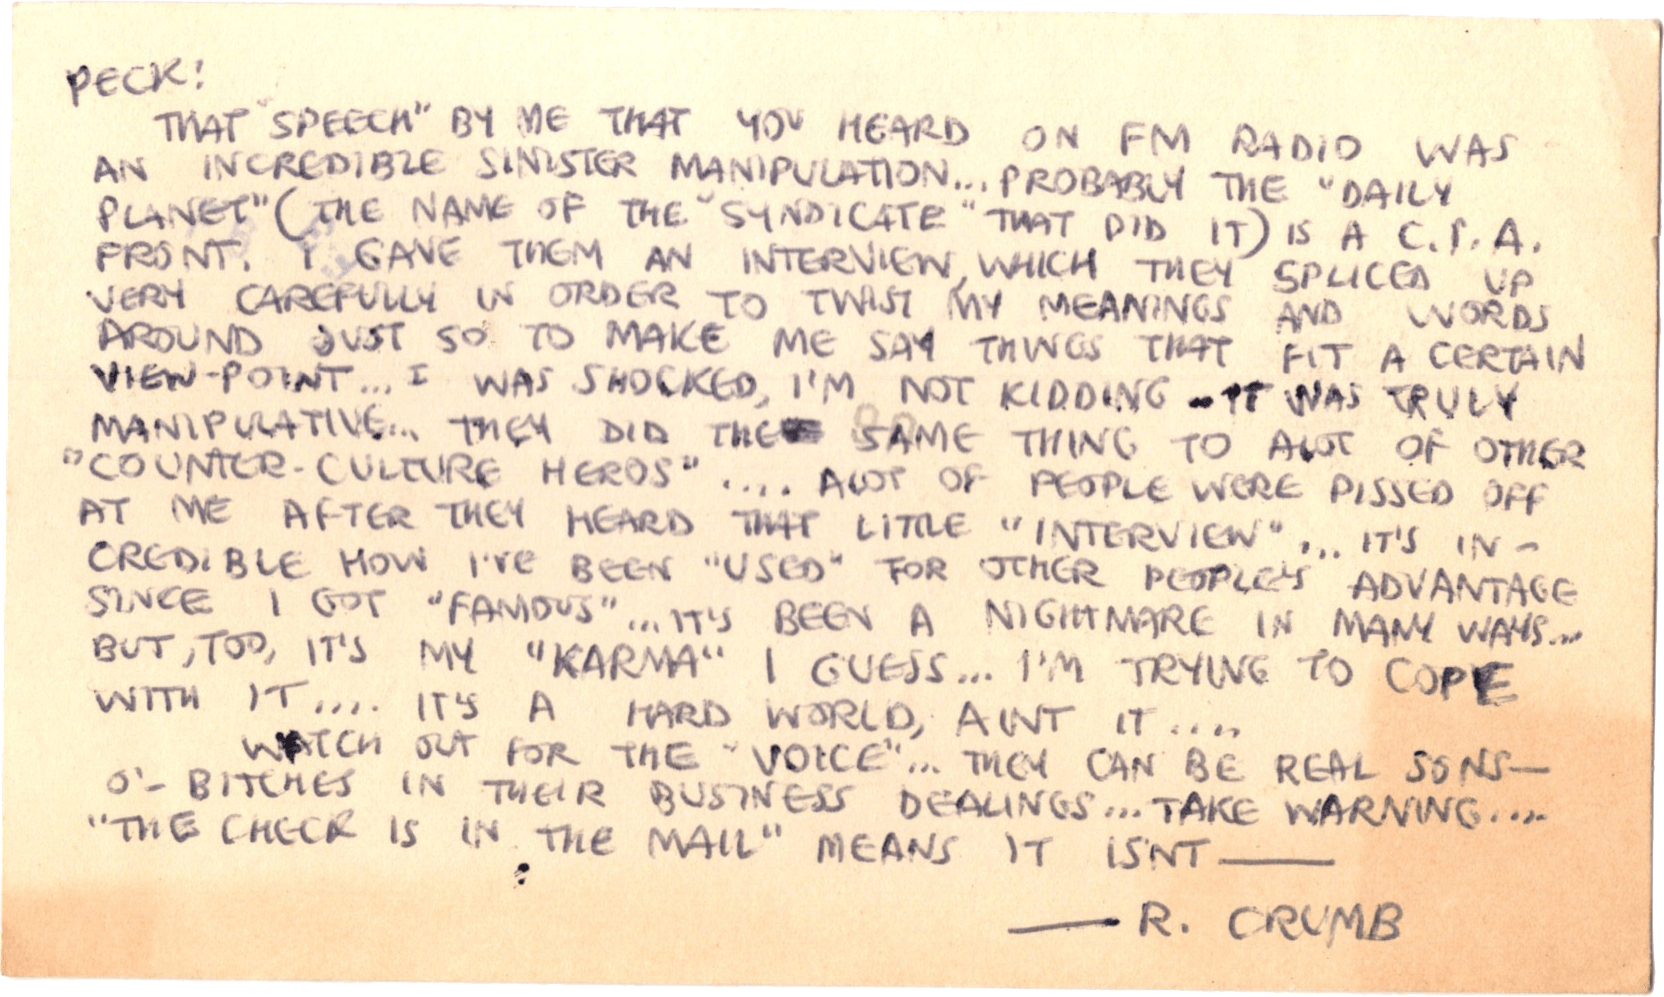 PECK!
THAT "SPEECH" BY ME THAT YOU HEARD ON FM RADIO WAS
AN INCREDIBLE SINISTER MANIPULATION... PROBABLY THE "DAILY
PLANET" (THE NAME OF THE "SYNDICATE" THAT DID IT) IS A C.I.A.
FRONT. I GAVE THEM AN INTERVIEW, WHICH THEY SPLICED UP
VERY CAREFULLY IN ORDER TO TWIST MY MEANINGS AND WORDS
AROUND JUST SO TO MAKE ME SAY THINGS THAT FIT A CERTAIN
VIEW-POINT... I WAS SHOCKED, I'M NOT KIDDING - IT WAS TRULY
MANIPULATIVE... THEY DID THE SAME THING TO ALOT OF OTHER
"COUNTER-CULTURE HEROS".... ALOT OF PEOPLE WERE PISSED OFF
AT ME AFTER THEY HEARD THAT LITTLE "INTERVIEW"... IT'S IN-
CREDIBLE HOW I'VE BEEN "USED" FOR OTHER PEOPLE'S ADVANTAGE
SINCE I GOT "FAMOUS"... IT'S BEEN A NIGHTMARE IN MANY WAYS...
BUT, TOO, IT'S MY "KARMA" I GUESS... I'M TRYING TO COPE
WITH IT.... IT'S A HARD WORLD, AINT IT....
WATCH OUT FOR THE "VOICE"... THEY CAN BE REAL SONS-
O'-BITCHES IN THEIR BUSINESS DEALINGS... TAKE WARNING....
"THE CHECK IS IN THE MAIL" MEANS IT ISN'T ——
— R. CRUMB